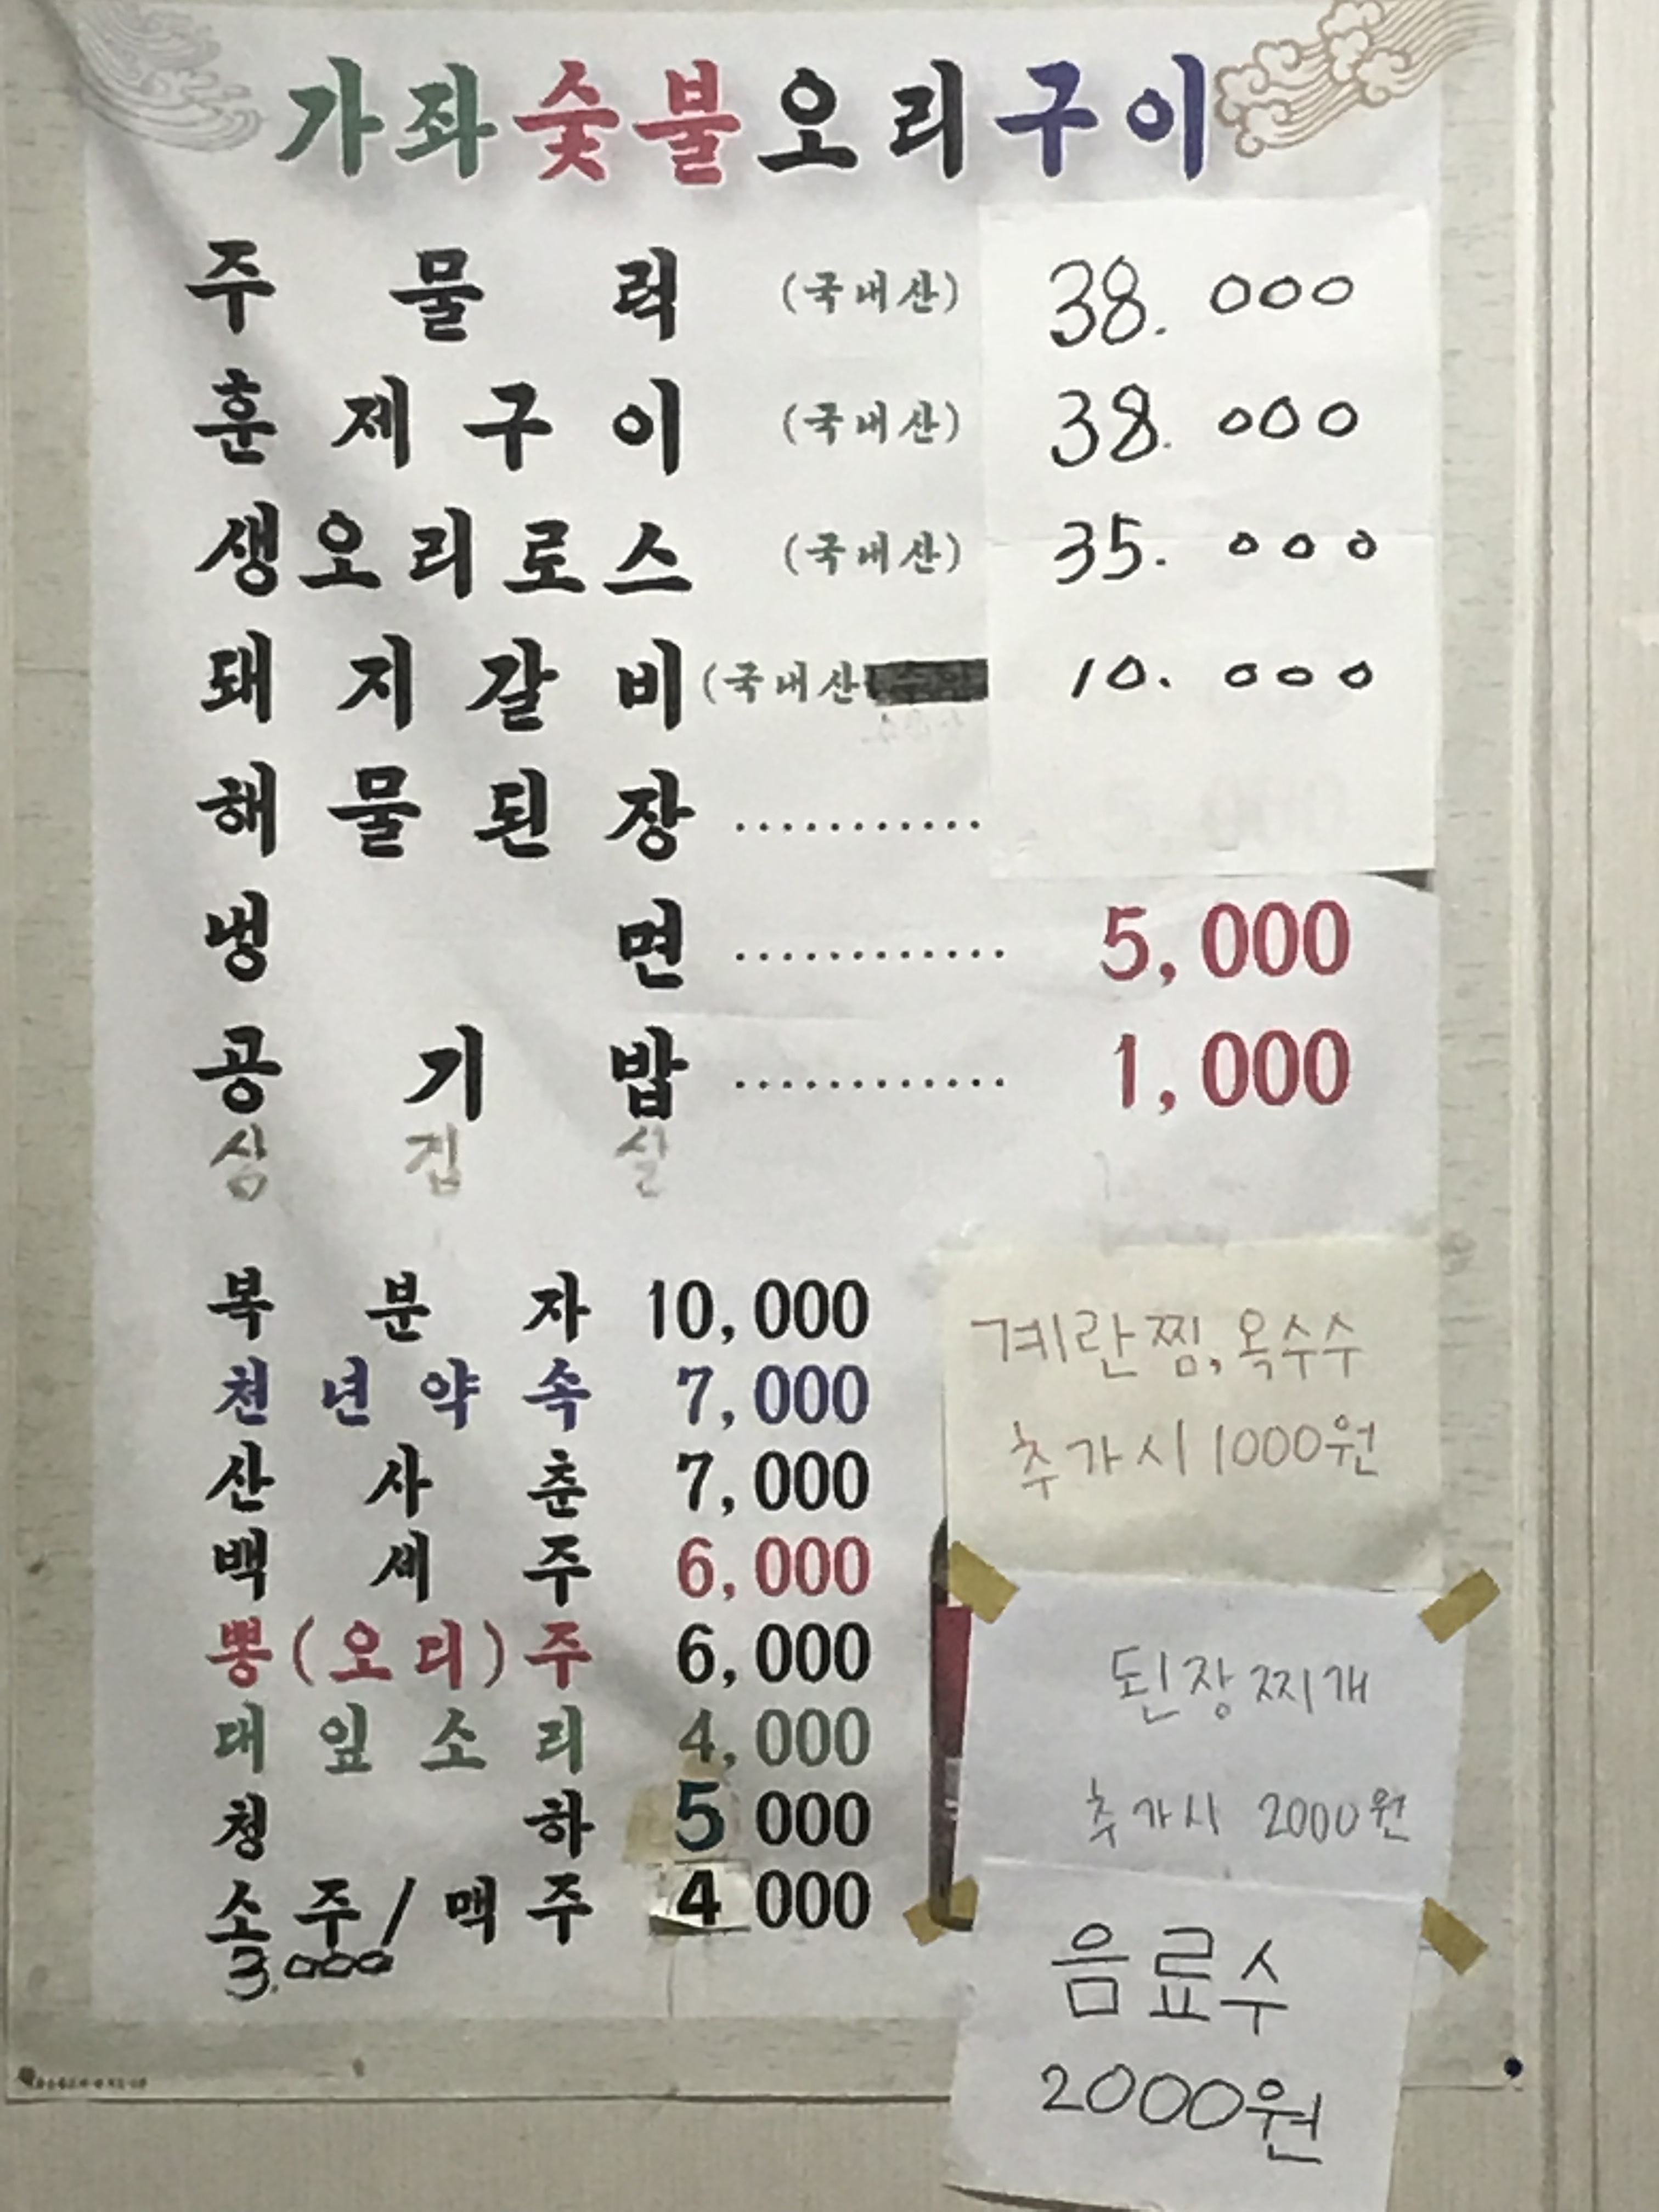 가좌숯불오리구이
주물럭 (국내산) 38.000
훈제구이 (국내산) 38.000
생오리로스 (국내산) 35.000
돼지갈비 (국내산 10.000
해물된장 ...........
냉면 ............ 5,000
공기밥 ............ 1,000
삼겹살
복분자 10,000
천년약속 7,000
산사춘 7,000
백세주 6,000
뽕(오디)주 6,000
대잎소리 4,000
청하 5 000
소주/맥주 4 000
3.000
계란찜,옥수수
추가시 1000원
된장찌개
추가시 2000원
음료수
2000원